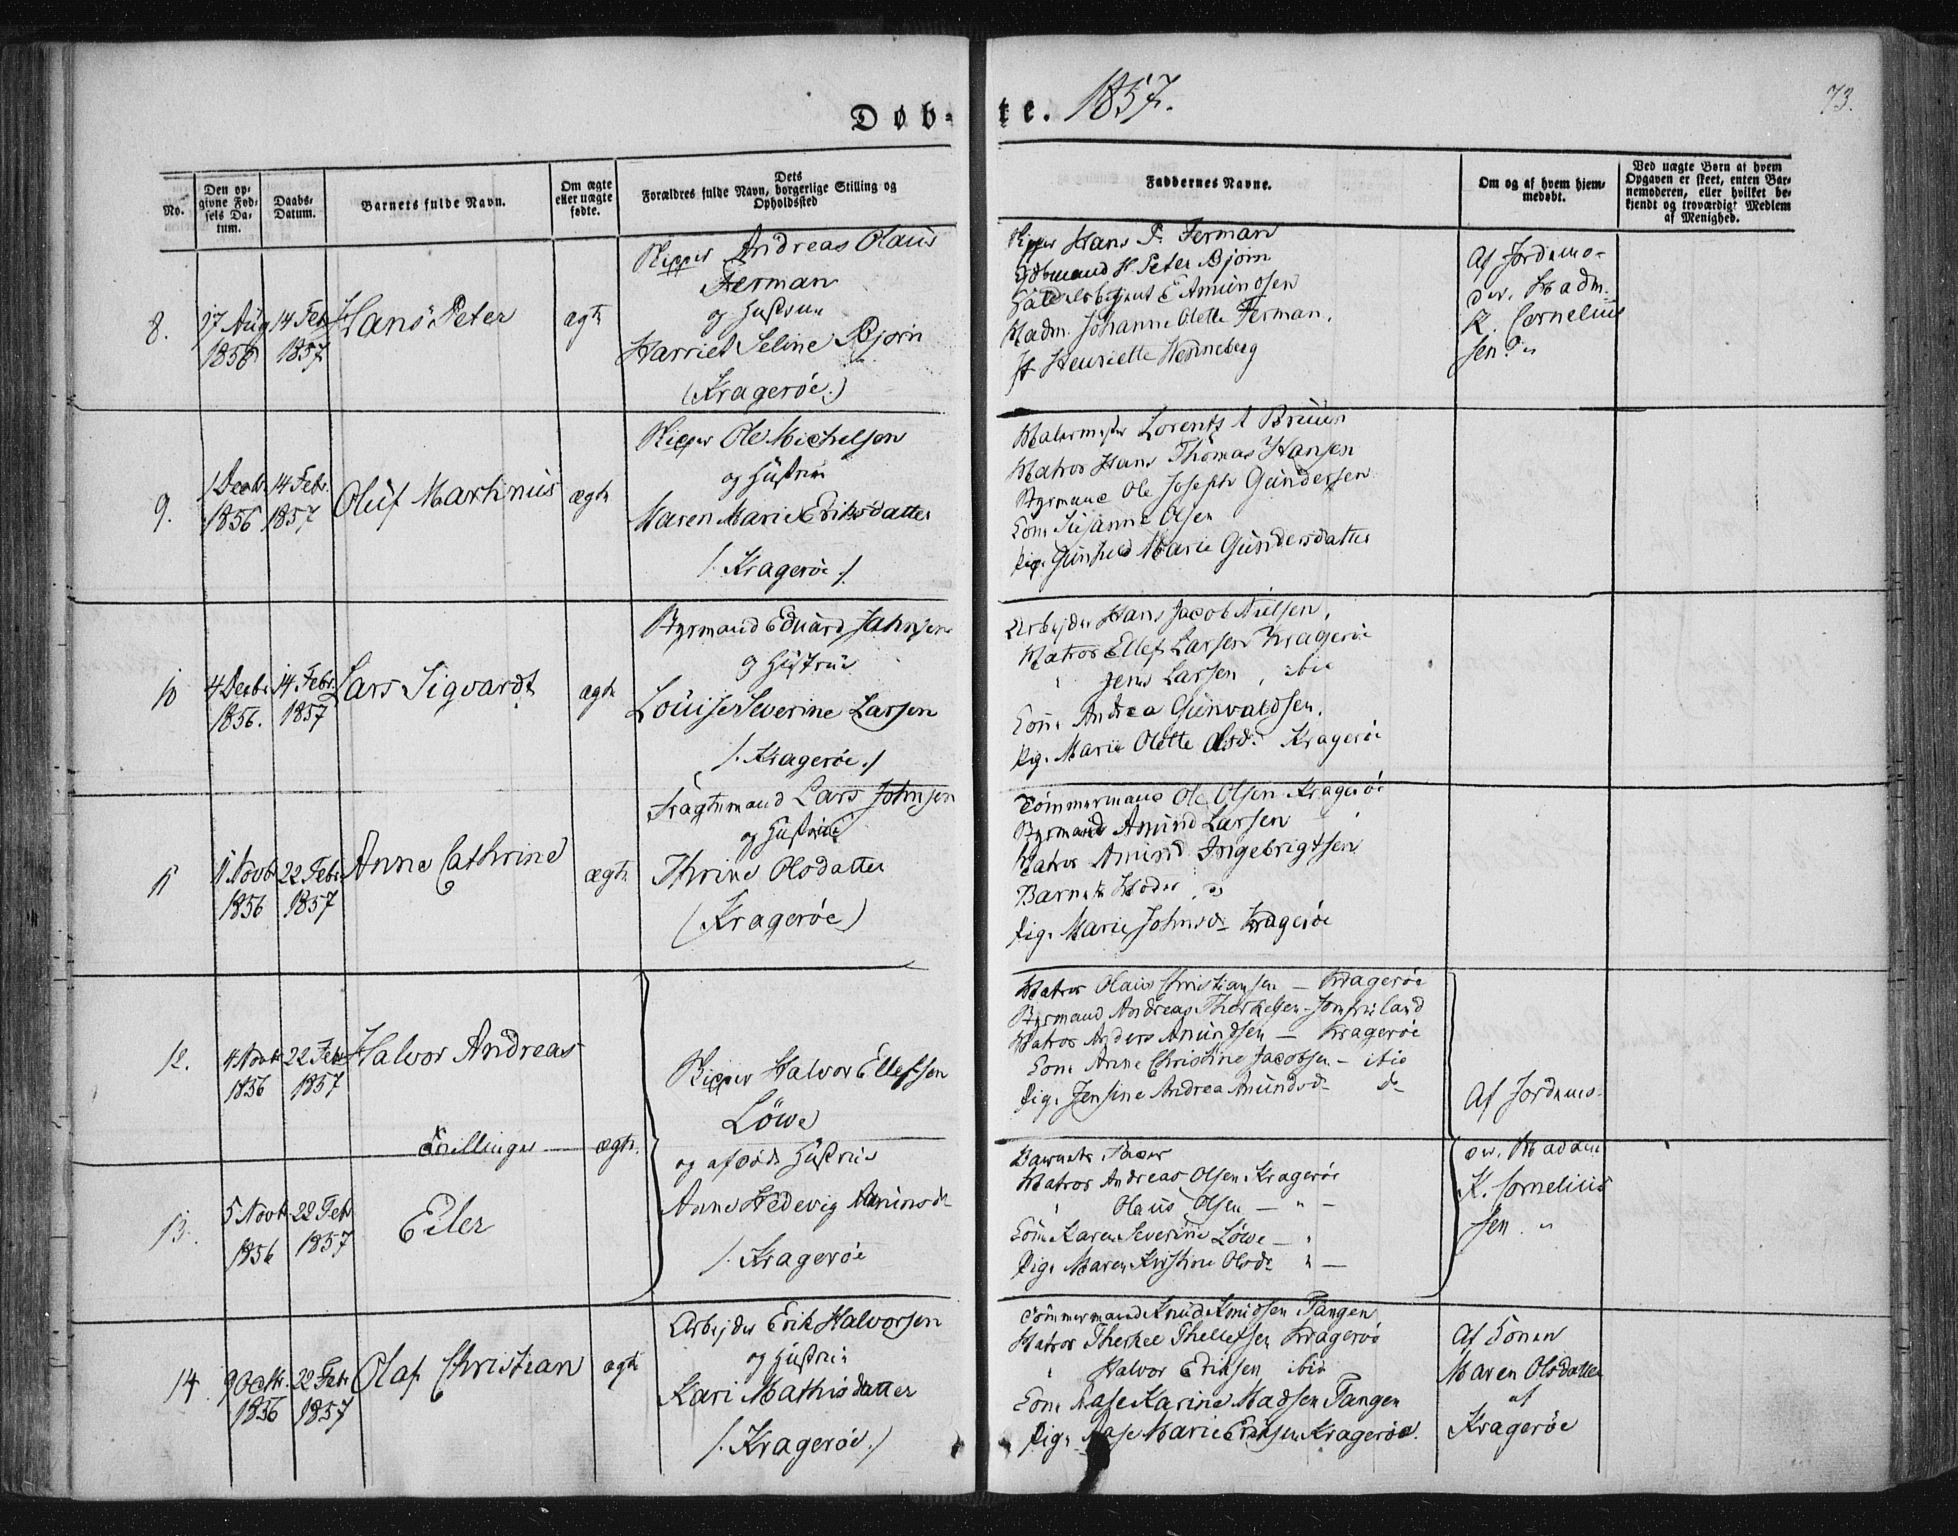 Døb-te. 1857.
73.
No.
Den op-
givne Fød-
sels Da-
tum.
Daabs-
Datum.
Barnets fulde Navn.
Om ægte
eller uægte
fødte.
Dets
Forældres fulde Navn, borgerlige Stilling og
Opholdssted
Faddernes Navne.
Om og af hvem hjem-
medøbt.
Ved uægte Børn af hvem
Opgaven er skeet, enten Bar-
nemoderen, eller hvilket be-
kjendt og troværdigt Medlem
af Menighed.
8.
17 Aug
1856
14 Feb
1857
Hans Peter
ægte
Skipper Andreas Olaus
Ferman
og Hustrue
Harriet Seline Bjørn
(Kragerøe.)
Skipper Hans P. Ferman
H Peter Bjørn
E Amundsen
Madm. Johanne Olette Ferman.
Henriette Henneberg
Af Jordemo-
der, Madm.
K. Cornelius
sen.
9.
1 Decbr
1856
14 Febr.
1857
Oluf Martinius
ægte
Skipper Ole Michelsen
og Hustrue
Maren Marie Eriksdatter
/. Kragerøe ./
Malermester Lorentz A Bruun
Matros Hans Thomas Hansen
Styrmand Ole Joseph Gundersen
Kone Susanne Olsen
Pige Gunhild Marie Gundersdatter
10
4 Decbr
1856.
14 Febr.
1857
Lars Sigvardt
ægte
Styrmand Eduard Johnsen
og Hustrue
Louise Severine Larsen
/. Kragerøe ./
Arbejder Hans Jacob Nielsen,
Matros Ellef Larsen Kragerøe
" Jens Larsen, ibid
Kone Andrea Gunvaldsen,
Pige Marie Olette Olsd. Kragerøe
11
11 Novbr
1856
22 Febr.
1857
Anne Cathrine
ægte
Fragtemand Lars Johnsen
og Hustrue
Thrine Olsdatter
(Kragerøe)
Tømmermand Ole Olsen Kragerøe
Styrmand Amund Larsen "
Matros Amund Ingebrigtsen
Barnets Moder
Pige Marie Johnsd. Kragerøe
12.
4 Novbr
1856
22 Febr
1857
Halvor Andreas
Tvillinger — ægte.
Skipper Halvor Ellefsen
Löwe
og afdøde Hustrue
Anne Hedevig Amundsd.
/. Kragerøe
Matros Olaus Christiansen — Kragerøe
Styrmand Andreas Thorkelsen - Jomfruland
Matros Anders Amundsen — Kragerøe
Kone Anne Christine Jacobsen — ibid
Pige Jensine Andrea Amundsd. do
Af Jordemo-
der, Madam
K. Cornelius
sen "
13.
5 Novbr.
1856
22 Feb
1857
Eiler
Barnets Fader
Matros Andreas Olsen Kragerøe
" Olaus Olsen — " —
Kone Karen Severine Löwe — "
Pige Maren Kirstine Olsd. " —
14.
9 Octbr.
1856
22 Febr
1857
Olaf Christian
ægte
Arbejder Erik Halvorsen
og Hustrue
Kari Mathisdatter
/. Kragerøe ./
Tömmermand Knud Knudsen Tangen
Matros Therkel Thellefsen Kragerøe
" Halvor Eriksen ibid
Kone Aase Karine Madsen Tangen
Pige Aase Marie Eriksen Kragerøe.
Af Konen
Maren Olsdatter
af
Kragerøe